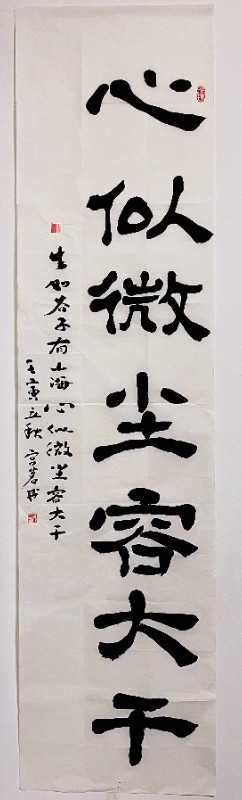 心似微尘容大千
生如芥子有山海心似微尘容大千
壬寅立秋